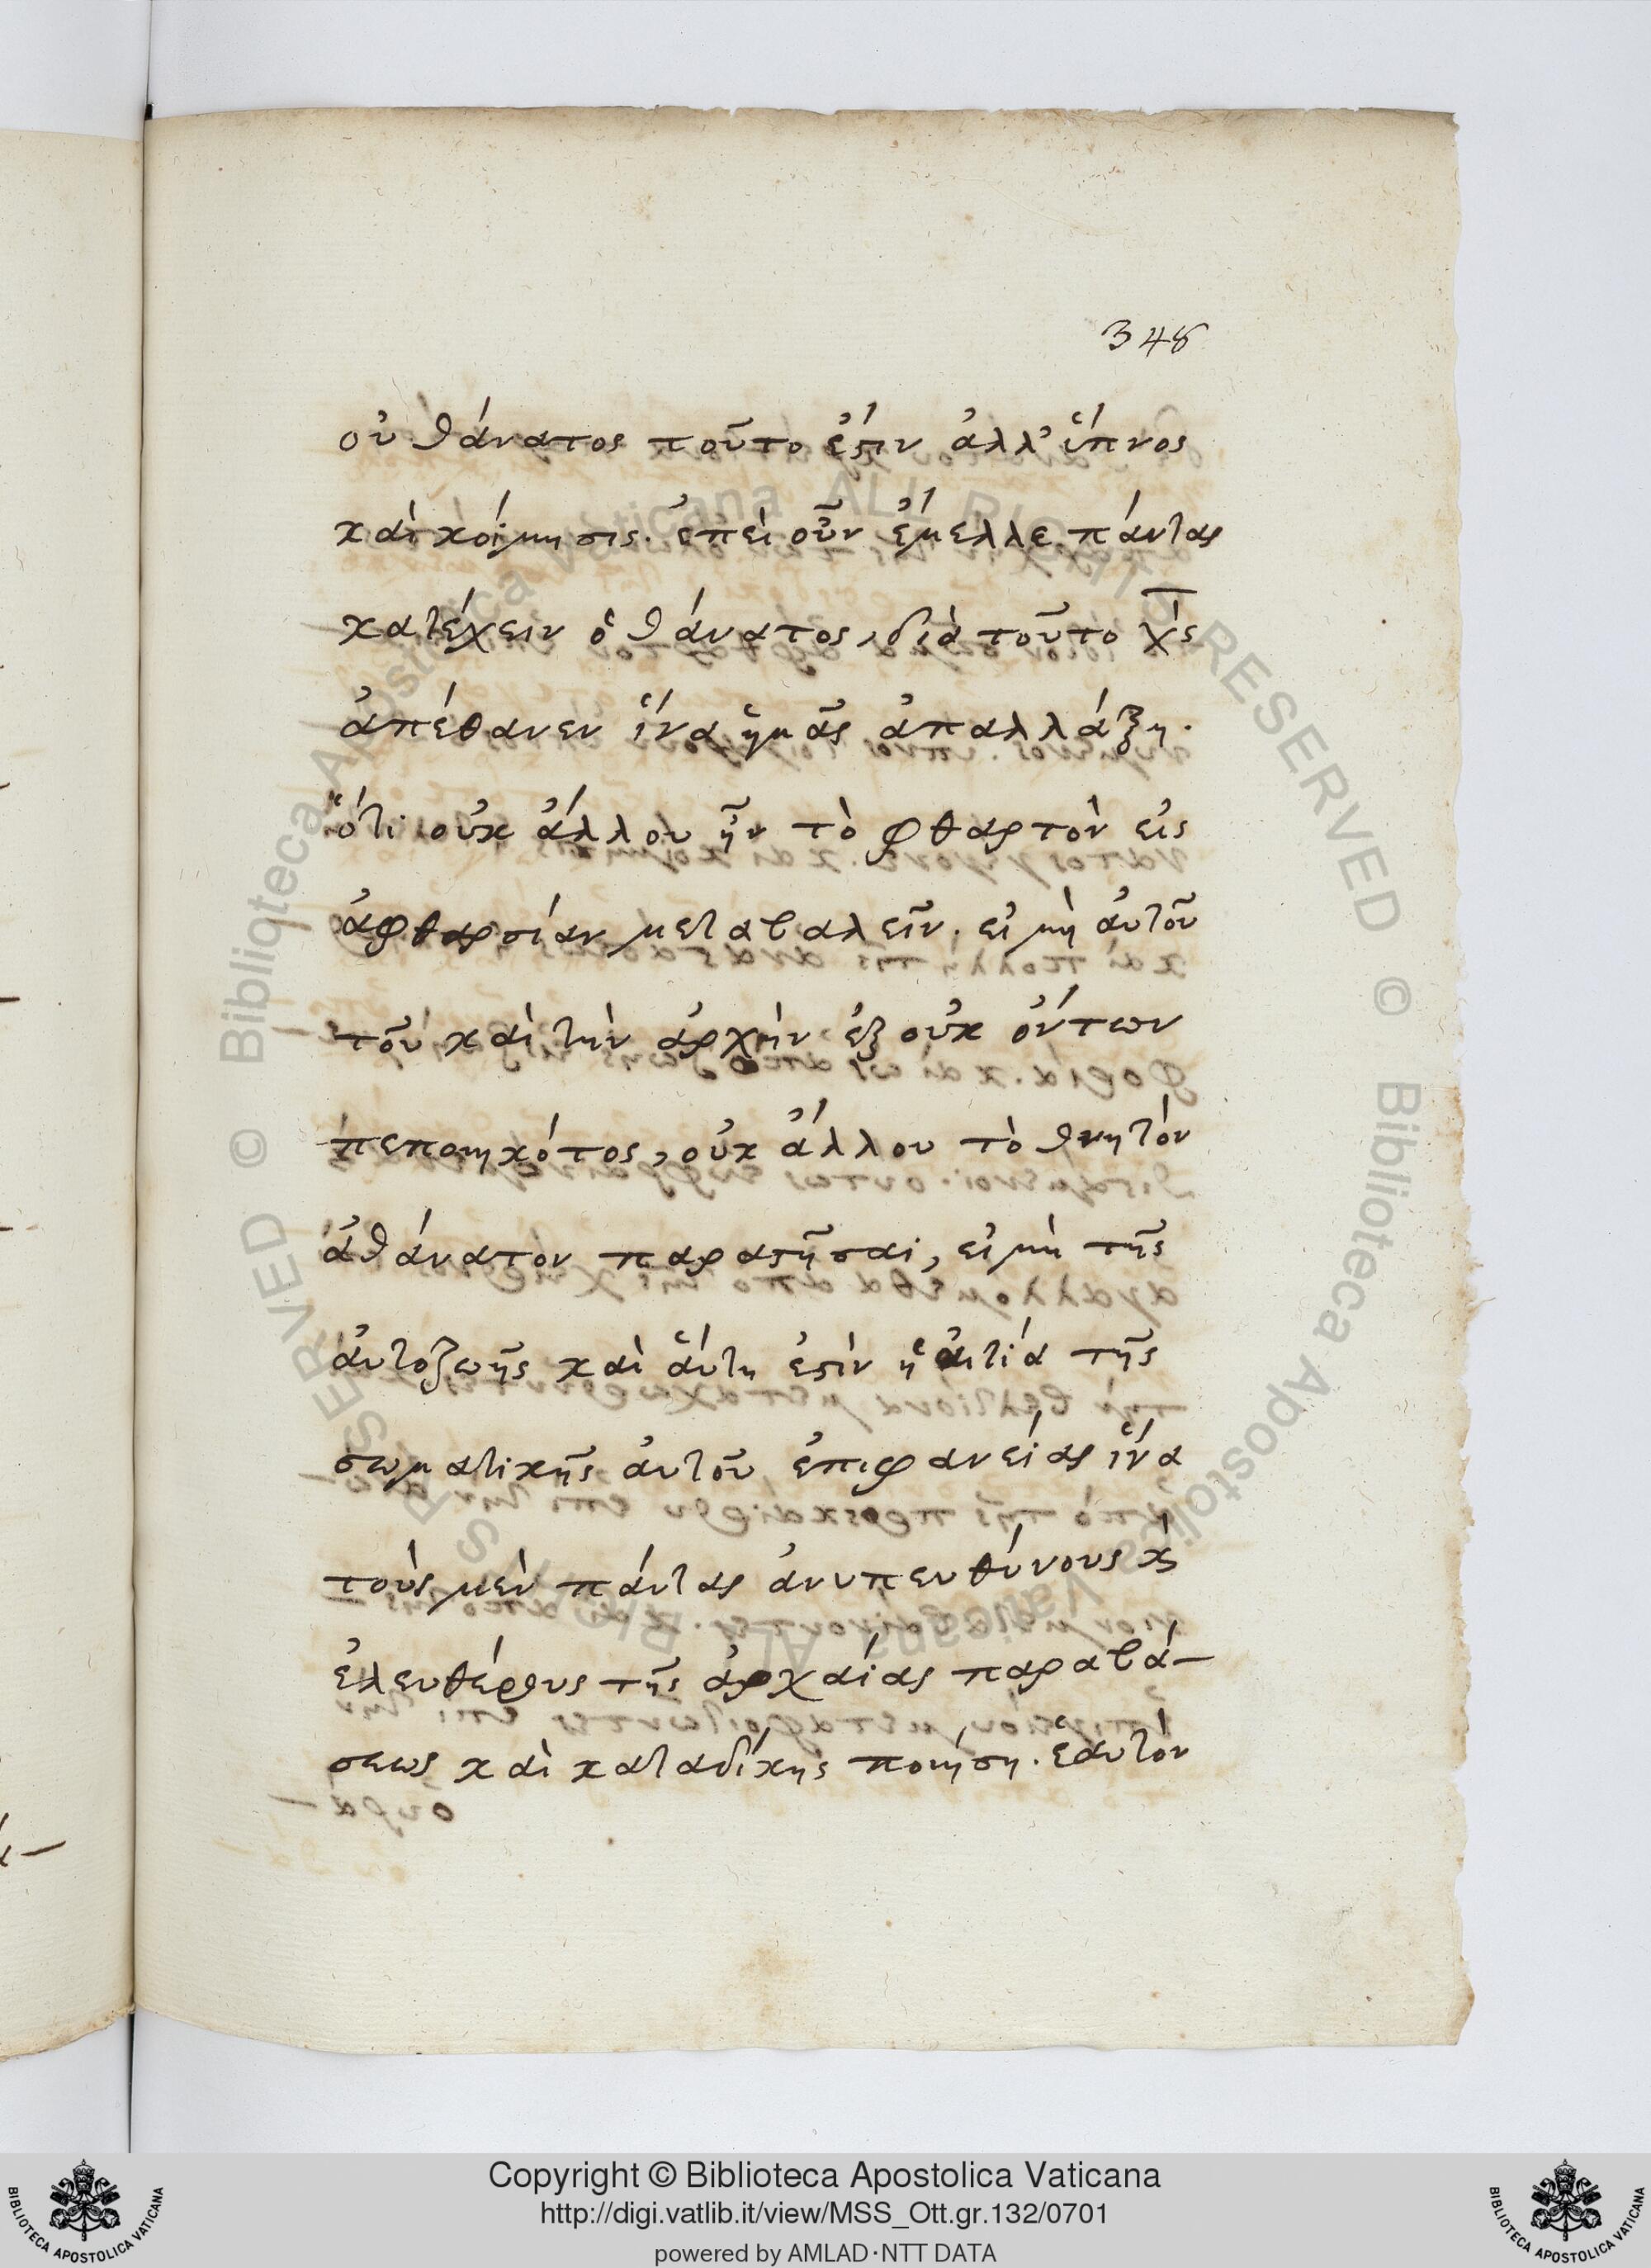 348
οὐ θάνατος τοῦτο ἐστιν ἀλλ' ὕπνος
καὶ κοίμησις. ἐπεὶ οὖν ἔμελλε πάντας
κατέχειν ὁ θάνατος, διὰ τοῦτο χς
ἀπέθανεν ἵνα ἡμᾶς ἀπαλλάξη.
ὅτι οὐκ ἄλλου ἦν τὸ φθαρτὸν εἰς
ἀφθαρσίαν μεταβαλεῖν. εἰ μὴ αὐτοῦ
τοῦ καὶ τὴν ἀρχὴν ἐξ οὐκ ὄντων
πεποιηκότος, οὐκ ἄλλου τὸ θνητὸν
ἀθάνατον παραστῆσαι, εἰ μὴ τῆς
αὐτοζωῆς καὶ αὕτη ἐστὶν ἡ αἰτία τῆς
σωματικῆς αὐτοῦ ἐπιφανείας ἵνα
τοὺς μὲν πάντας ἀνυπευθύνους κ
ἐλευθέρους τῆς ἀρχαίας παραβά-
σεως καὶ καταδίκης ποιήση. ἑαυτὸν
Copyright © Biblioteca Apostolica Vaticana
http://digi.vatlib.it/view/MSS_Ott.gr.132/0701
powered by AMLAD·NTT DATA
BIBLIOTECA APOSTOLICA VATICANA
BIBLIOTECA APOSTOLICA VATICANA